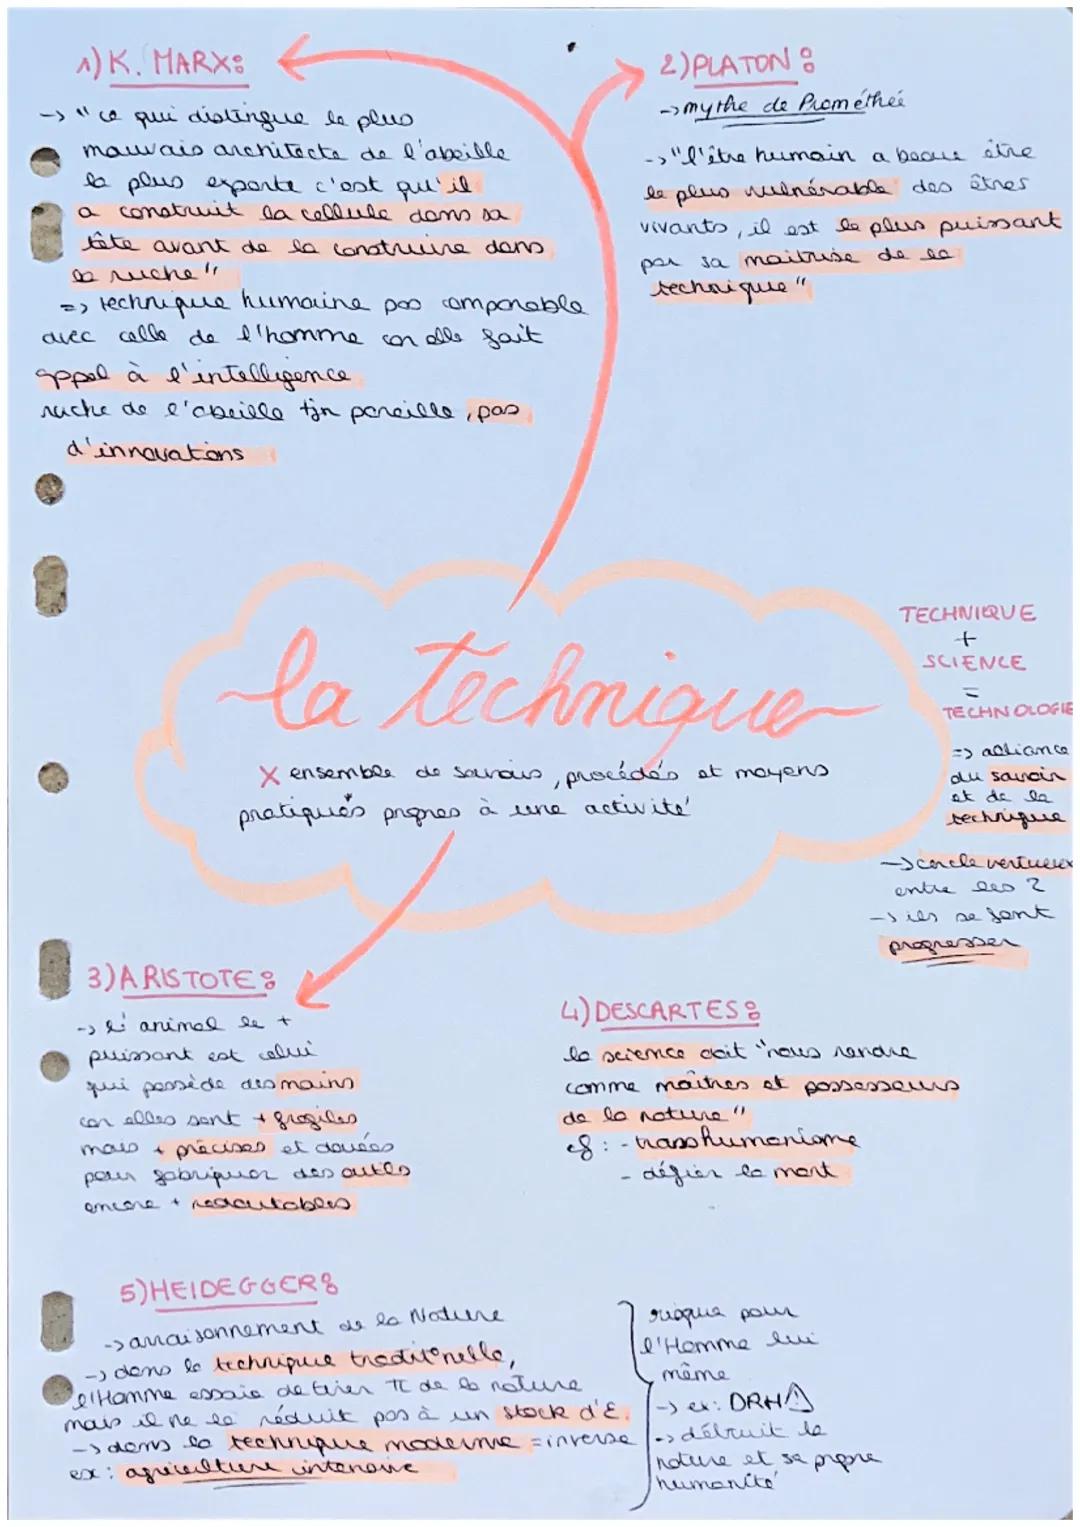 1) K. MARX:
-> "ce qui distingue le plus
mauvais architecte de l'abeille
la plus experte c'est qu'il
a construit la cellule dans sa
tête avant de la construire dans
la ruche"
=> technique humaine pas comparable
avec celle de l'homme car elle fait
appel à l'intelligence
ruche de l'abeille tjn pareille, pas
d'innovations
2) PLATON :
-> mythe de Prométhée
-> "l'être humain a beau être
le plus vulnérable des êtres
vivants, il est le plus puissant
par sa maitrise de la
technique"
la technique
X ensemble de savoirs, procédés et moyens
pratiques propres à une activité
TECHNIQUE
+
SCIENCE
=
TECHNOLOGIE
=> alliance
du savoir
et de la
technique
-> cercle vertueux
entre les 2
-> ils se font
progresser
3) ARISTOTE :
-> l'animal le +
puissant est celui
qui possède des mains
car elles sont + fragiles
mais + précises et douées
pour fabriquer des outils
encore + redoutables
4) DESCARTES :
la science doit "nous rendre
comme maîtres et possesseurs
de la nature"
cf : - transhumanisme
- défier la mort
5) HEIDEGGER :
-> arraisonnement de la Nature
-> dans la technique traditionelle,
l'Homme essaie de tirer π de la nature
mais il ne la réduit pas à un stock d'E.
-> dans la technique moderne = inverse
ex : agriculture intensive
risque pour
l'Homme lui
même
-> ex : DRH ⚠
-> détruit la
nature et sa propre
humanité